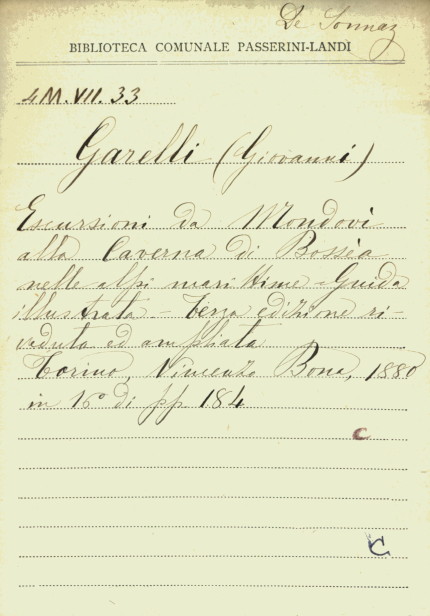 De Sonnaz
BIBLIOTECA COMUNALE PASSERINI-LANDI
4M.VII.33
Garelli (Giovanni)
Escursioni da Mondovì
alla Caverna di Bossèa
nelle alpi marittime - Guida
illustrata - Terza edizione ri-
veduta ed ampliata
Torino, Vincenzo Bona, 1880
in 16º di pp 184
C
C